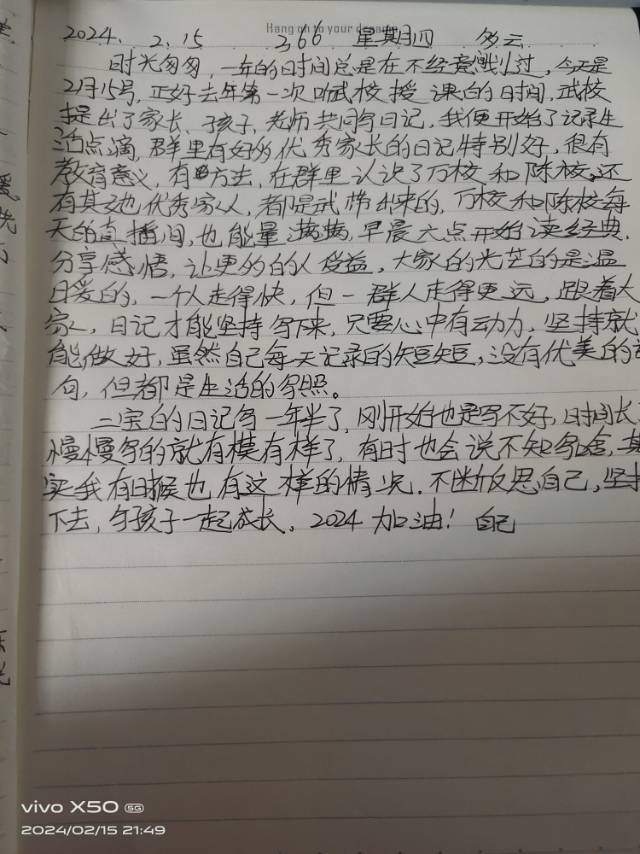 Hang on to your dreams
2024. 2. 15 366 星期四 多云
时光匆匆，一年的时间总是在不经意划过，今天是
2月15号，正好去年第一次听武校授课的日间，武校
提出了家长、孩子、老师共同写日记，我便开始了记录生
活点滴，群里有好多优秀家长的日记特别好，很有
教育意义，有方法，在群里认识了万校和陈校，还
有其他优秀家人，都是武带出来的，万校和陈校每
天的直播间，也能量满满，早晨六点开始读经典，
分享感悟，让更多的人受益，大家的光芒的是温
暖的，一个人走得快，但一群人走得更远，跟着大
家，日记才能坚持写下来，只要心中有动力，坚持就
能做好，虽然自己每天记录的短短，没有优美的
句，但都是生活的写照。
二宝的日记写一年半了，刚开始也是写不好，时间长
慢慢写的就有模有样了，有时也会说不知写啥，其
实我有时候也有这样的情况．不断反思自己，坚持
下去，与孩子一起成长。2024加油！自己
vivo X50 5G
2024/02/15 21:49